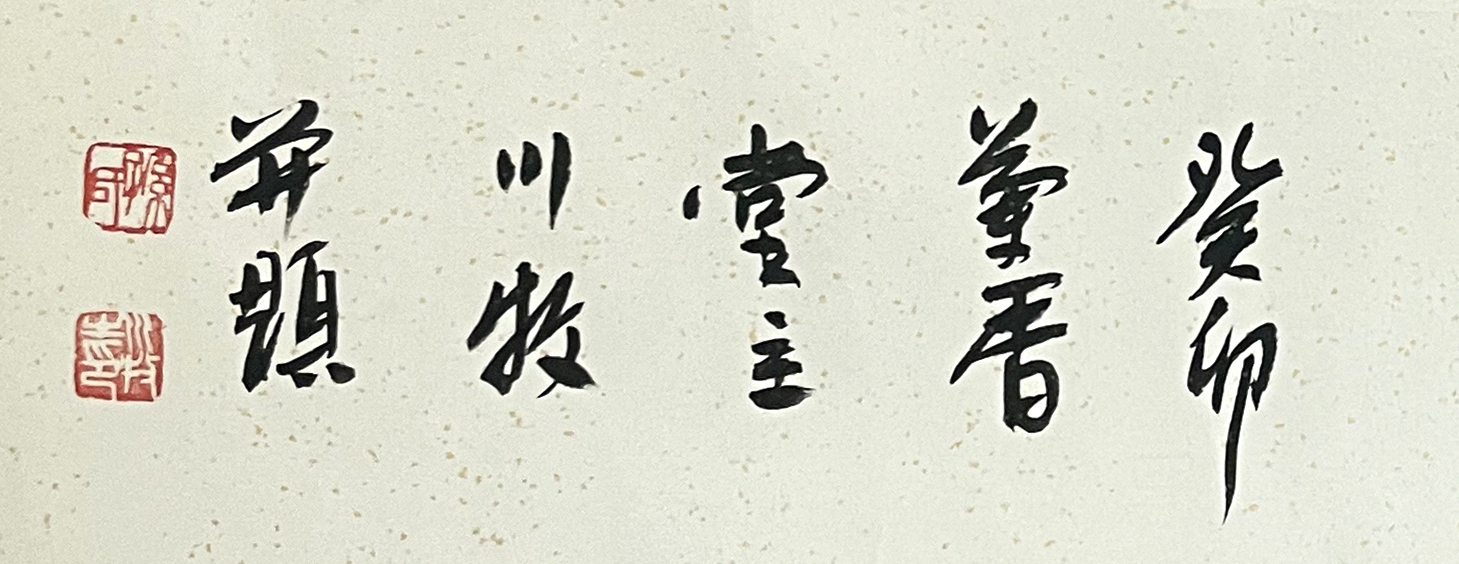 癸卯
兰香
堂主
川牧
并题